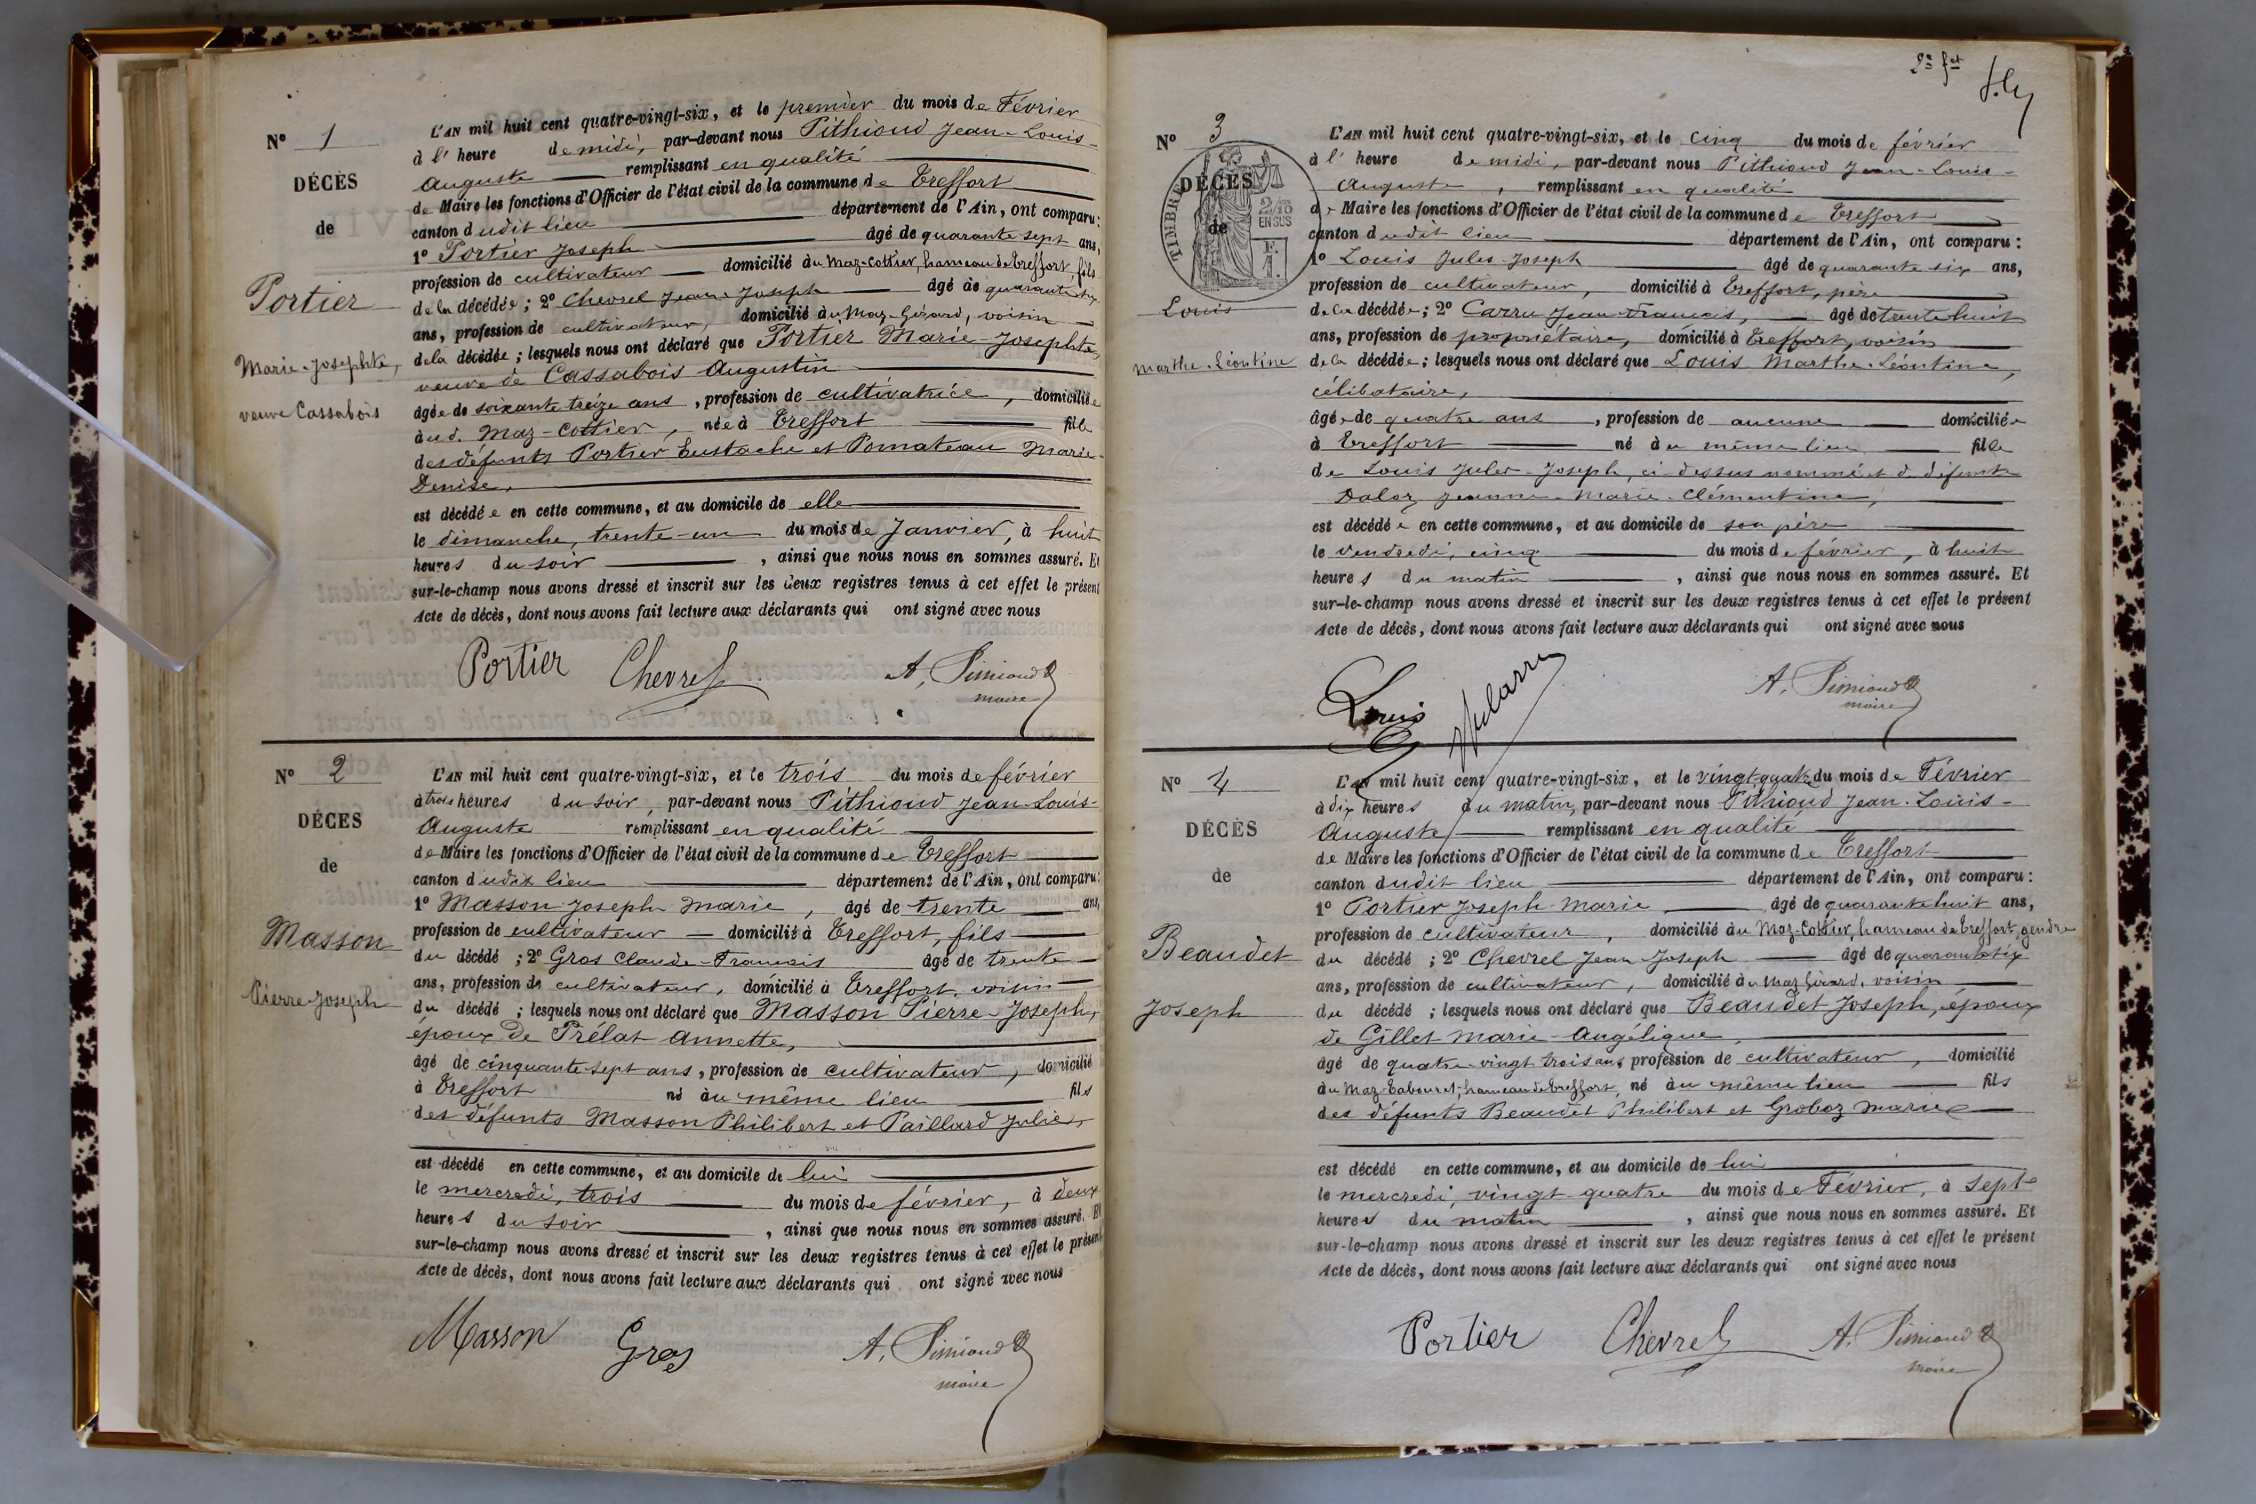 N° 1
DÉCÈS
de
Portier
Marie-Josephte,
veuve Cassabois
L'AN mil huit cent quatre-vingt-six, et le premier du mois de Février
à l' heure de midi, par-devant nous Pithioud Jean-Louis-
Auguste remplissant en qualité
de Maire les fonctions d'Officier de l'état civil de la commune de Treffort
canton dudit lieu département de l'Ain, ont comparu:
1° Portier Joseph âgé de quarante sept ans,
profession de cultivateur domicilié au Maz-Cottier, hameau de Treffort, fils
de la décédée; 2° Chevrel Jean-Joseph âgé de quarante six
ans, profession de cultivateur, domicilié au Maz-Girard, voisin
de la décédée; lesquels nous ont déclaré que Portier Marie-Josephte,
veuve de Cassabois Augustin
âgée de soixante treize ans, profession de cultivatrice, domiciliée
aud. Maz-Cottier, née à Treffort fille
des défunts Portier Eustache et Pomateau Marie-
Denise,
est décédée en cette commune, et au domicile de elle
le dimanche, trente-un du mois de Janvier, à huit
heures du soir, ainsi que nous nous en sommes assuré. Et
sur-le-champ nous avons dressé et inscrit sur les deux registres tenus à cet effet le présent
Acte de décès, dont nous avons fait lecture aux déclarants qui ont signé avec nous
Portier Chevrel A. Pithioud
maire
N° 2
DÉCÈS
de
Masson
Pierre-Joseph
L'AN mil huit cent quatre-vingt-six, et le trois du mois de février
à trois heures du soir, par-devant nous Pithioud Jean-Louis-
Auguste remplissant en qualité
de Maire les fonctions d'Officier de l'état civil de la commune de Treffort
canton dudit lieu département de l'Ain, ont comparu:
1° Masson Joseph Marie, âgé de trente ans,
profession de cultivateur domicilié à Treffort, fils
du décédé; 2° Gros Claude-François âgé de trente
ans, profession de cultivateur, domicilié à Treffort, voisin
du décédé; lesquels nous ont déclaré que Masson Pierre-Joseph,
époux de Prélat Annette,
âgé de cinquante-sept ans, profession de cultivateur, domicilié
à Treffort né au même lieu fils
des défunts Masson Philibert et Paillard Julie,
est décédé en cette commune, et au domicile de lui
le mercredi, trois du mois de février, à deux
heures du soir, ainsi que nous nous en sommes assuré. Et
sur-le-champ nous avons dressé et inscrit sur les deux registres tenus à cet effet le présent
Acte de décès, dont nous avons fait lecture aux déclarants qui ont signé avec nous
Masson Gros A. Pithioud
maire
2e fet
N° 3
DÉCÈS
de
TIMBRE
2/10
EN SUS
Louis
Marthe-Léontine
L'AN mil huit cent quatre-vingt-six, et le cinq du mois de février
à l' heure de midi, par-devant nous Pithioud Jean-Louis-
Auguste, remplissant en qualité
de Maire les fonctions d'Officier de l'état civil de la commune de Treffort
canton dudit lieu département de l'Ain, ont comparu:
1° Louis Jules-Joseph âgé de quarante six ans,
profession de cultivateur, domicilié à Treffort, père
de la décédée; 2° Carru Jean-François, âgé de trente huit
ans, profession de propriétaire, domicilié à Treffort, voisin
de la décédée; lesquels nous ont déclaré que Louis Marthe-Léontine,
célibataire,
âgée de quatre ans, profession de aucune domiciliée
à Treffort né au même lieu fille
de Louis Jules-Joseph, ci-dessus nommé et de défunte
Daloz Jeanne-Marie-Clémentine,
est décédée en cette commune, et au domicile de son père
le vendredi, cinq du mois de février, à huit
heures du matin, ainsi que nous nous en sommes assuré. Et
sur-le-champ nous avons dressé et inscrit sur les deux registres tenus à cet effet le présent
Acte de décès, dont nous avons fait lecture aux déclarants qui ont signé avec nous
Louis A. Pithioud
maire
N° 4
DÉCÈS
de
Beaudet
Joseph
L'AN mil huit cent quatre-vingt-six, et le vingt-quatre du mois de Février
à dix heures du matin, par-devant nous Pithioud Jean-Louis-
Auguste remplissant en qualité
de Maire les fonctions d'Officier de l'état civil de la commune de Treffort
canton dudit lieu département de l'Ain, ont comparu:
1° Portier Joseph-Marie âgé de quarante huit ans,
profession de cultivateur, domicilié au Maz-Cottier, hameau de Treffort, gendre
du décédé; 2° Chevrel Jean-Joseph âgé de quarante six
ans, profession de cultivateur, domicilié au Maz-Girard, voisin
du décédé; lesquels nous ont déclaré que Beaudet Joseph, époux
de Gillet Marie-Angélique,
âgé de quatre-vingt trois ans, profession de cultivateur, domicilié
au Maz-Tabouret, hameau de Treffort, né au même lieu fils
des défunts Beaudet Philibert et Groboz Marie
est décédé en cette commune, et au domicile de lui
le mercredi, vingt-quatre du mois de Février, à sept
heures du matin, ainsi que nous nous en sommes assuré. Et
sur-le-champ nous avons dressé et inscrit sur les deux registres tenus à cet effet le présent
Acte de décès, dont nous avons fait lecture aux déclarants qui ont signé avec nous
Portier Chevrel A. Pithioud
maire